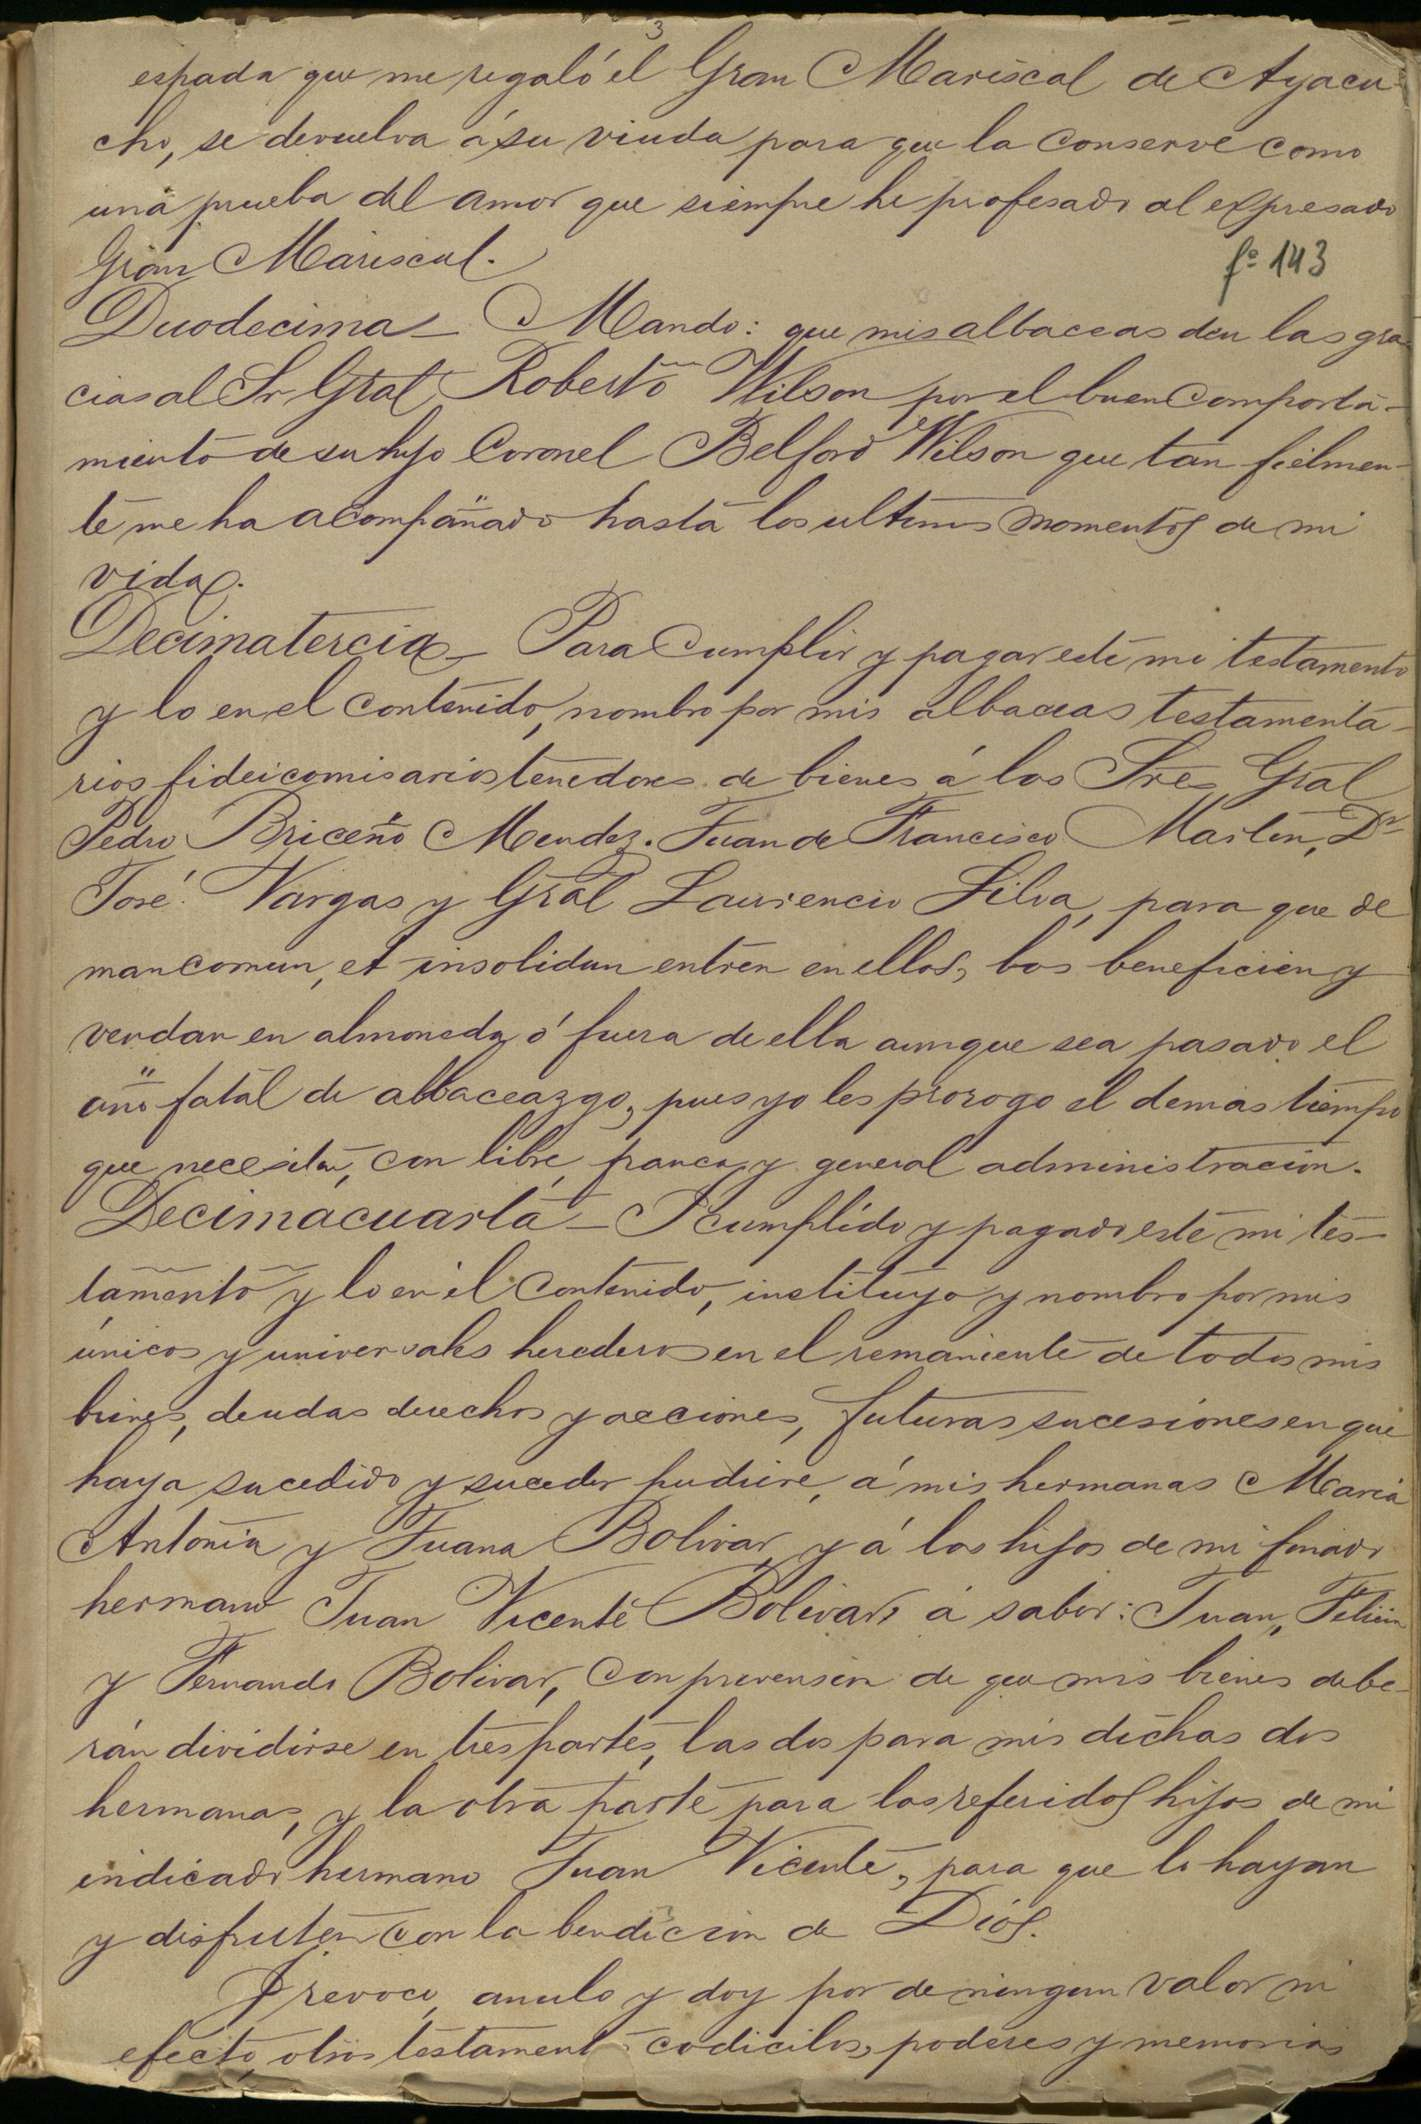 3
espada que me regaló el Gran Mariscal de Ayacu-
cho, se devuelva á su viuda para que la conserve como
una prueba del amor que siempre he profesado al expresado
Gran Mariscal.
fº 143
Duodecima — Mando: que mis albaceas den las gra-
cias al Sr. Gral Roberto Wilson por el buen comporta-
miento de su hijo Coronel Belford Wilson que tan fielmen-
te me ha acompañado hasta los ultimos momentos de mi
vida.
Decimatercia — Para cumplir y pagar este mi testamento
y lo en el contenido, nombro por mis albaceas testamenta-
rios fideicomisarios tenedores de bienes á los Sres Gral
Pedro Briceño Mendez. Juan de Francisco Martin, Dr
José Vargas y Gral Laurencio Silva, para que de
mancomun, et insolidun entren en ellos, los beneficien y
vendan en almoneda ó fuera de ella aunque sea pasado el
año fatal de albaceazgo, pues yo les prorogo el demas tiempo
que necesitan, con libre, franca y general administracion.
Decimacuarta — I cumplido y pagado este mi tes-
tamento y lo en él contenido, instituyo y nombro por mis
únicos y universales herederos en el remaniente de todos mis
bienes, deudas derechos y acciones, futuras sucesiones en que
haya sucedido y suceder pudiere, á mis hermanas Maria
Antonia y Juana Bolivar, y á los hijos de mi finado
hermano Juan Vicente Bolivar, á saber: Juan, Felicia
y Fernando Bolivar, con prevension de que mis bienes debe-
rán dividirse en tres partes, las dos para mis dichas dos
hermanas, y la otra parte para los referidos hijos de mi
indicado hermano Juan Vicente, para que lo hayan
y disfruten con la bendicion de Dios.
I revoco, anulo y doy por de ningun valor ni
efecto, otros testament codicilos, poderes y memorias